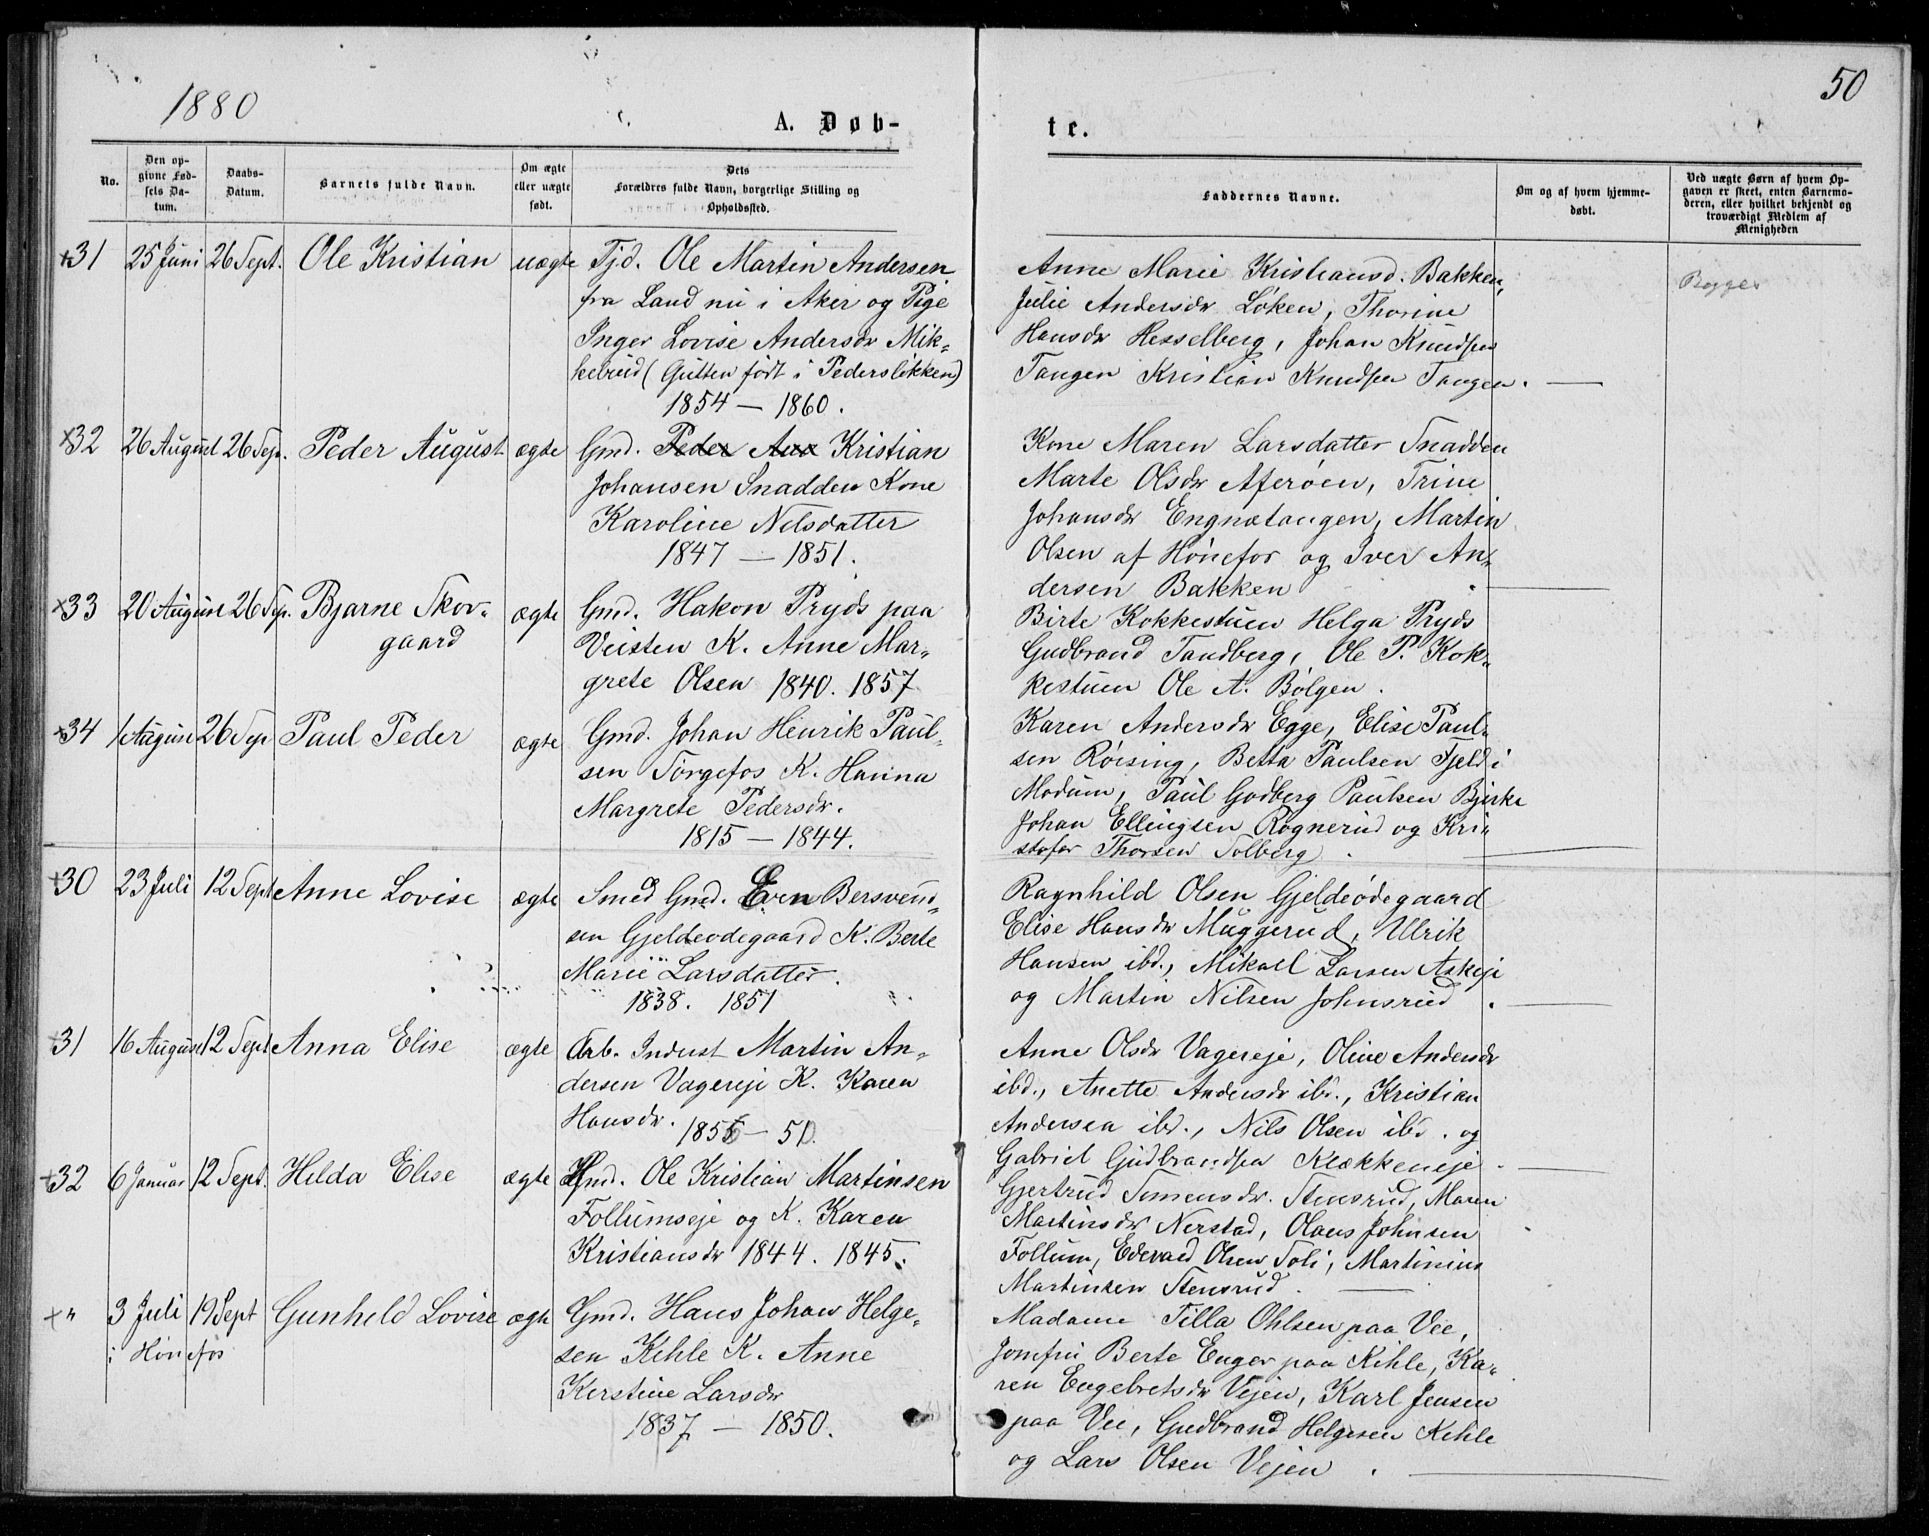 1880
50
A. Døb-
te.
No.
Den op-
givne Fød-
sels Da-
tum.
Daabs-
Datum.
Barnets fulde Navn.
Om ægte
eller uægte
født.
Dets
Forældres fulde Navn, borgerlige Stilling og
Opholdssted.
Faddernes Navne.
Om og af hvem hjemme-
døbt.
Ved uægte Børn af hvem Op-
gaven er skeet, enten Barnemo-
deren, eller hvilket bekjendt og
troværdigt Medlem af
Menigheden
31 25 Juni 26 Sept. Ole Kristian uægte Tjd. Ole Martin Andersen
fra Land nu i Aker og Pige
Inger Lovise Andersdr Mik-
kelrud (Gutten födt i Pederslökken)
1854 – 1860.
Anne Marie Kristiansd. Bakken,
Julie Andersdr Löken, Thorine
Hansdr Hesselberg, Johan Knudsen
Tangen Kristian Knudsen Tangen.
32 26 August 26 Sep. Peder August ægte Gmd. Peder Aux Kristian
Johansen Snadden Kone
Karoline Nilsdatter
1847 – 1851.
Kone Maren Larsdatter Snadden
Marte Olsdr Aferöen, Trine
Johansdr Engnætangen, Martin
Olsen af Hönefos og Iver An-
dersen Bakken
33 20 August 26 Sep. Bjarne Skov-
gaard
ægte Gmd. Hakon Pryds paa
Veisten K. Anne Mar-
grete Olsen 1840. 1857
Birte Kokkestuen Helga Pryds
Gudbrand Tandberg, Ole P. Kok-
kestuen Ole A. Bølgen.
34 1 August 26 Sep Paul Peder ægte Gmd. Johan Henrik Paul-
sen Törgefos K. Hanna
Margrete Pedersdr.
1815 – 1844.
Karen Andersdr Egge, Elise Paul-
sen Röising, Betta Paulsen Fjeld i
Modum, Paul Godberg Paulsen Bjerke
Johan Ellingsen Rognerud og Kri-
stofer Thorsen Solberg.
30 23 Juli 12 Sept Anne Lovise ægte Smed Gmd. Even Bersvend-
sen Gjeldeodegaard K. Berte
Marie Larsdatter.
1838. 1851
Ragnhild Olsen Gjeldeödegaard
Elise Hansdr Muggerud, Ulrik
Hansen ibd., Mikael Larsen Askeje
og Martin Nilsen Johnsrud.
31 16 August 12 Sept Anna Elise ægte Arb. Indust Martin An-
dersen Vagereje K. Karen
Hansdr.
Anne Olsdr Vagereje, Oline Andersdr
ibd., Anette Andersdr ibd., Kristian
Andersen ibd., Nils Olsen ibd. og
Gabriel Gudbrandsen Klækkeneje.
32 6 Januar 12 Sept. Hilda Elise ægte Hmd. Ole Kristian Martinsen
Follumseje og K. Karen
Kristiansdr 1844. 1845.
Gjertrud Simensdr. Stensrud, Maren
Martinsdr Nerstad, Olaus Johnsen
Follum, Edevard Olsen Soli, Martinius
Martinsen Stensrud.
" 3 Juli 19 Sept Gunhild Lovise ægte Gmd. Hans Johan Helge-
i Hönefos
sen Kihle K. Anne
Kerstine Larsdr
1837 – 1850.
Madame Tilla Ohlsen paa Vee,
Jomfru Berte Enger paa Kihle, Ka-
ren Engebretsdr Vejen, Karl Jensen
paa Vee, Gudbrand Helgesen Kihle
og Lars Olsen Vejen.